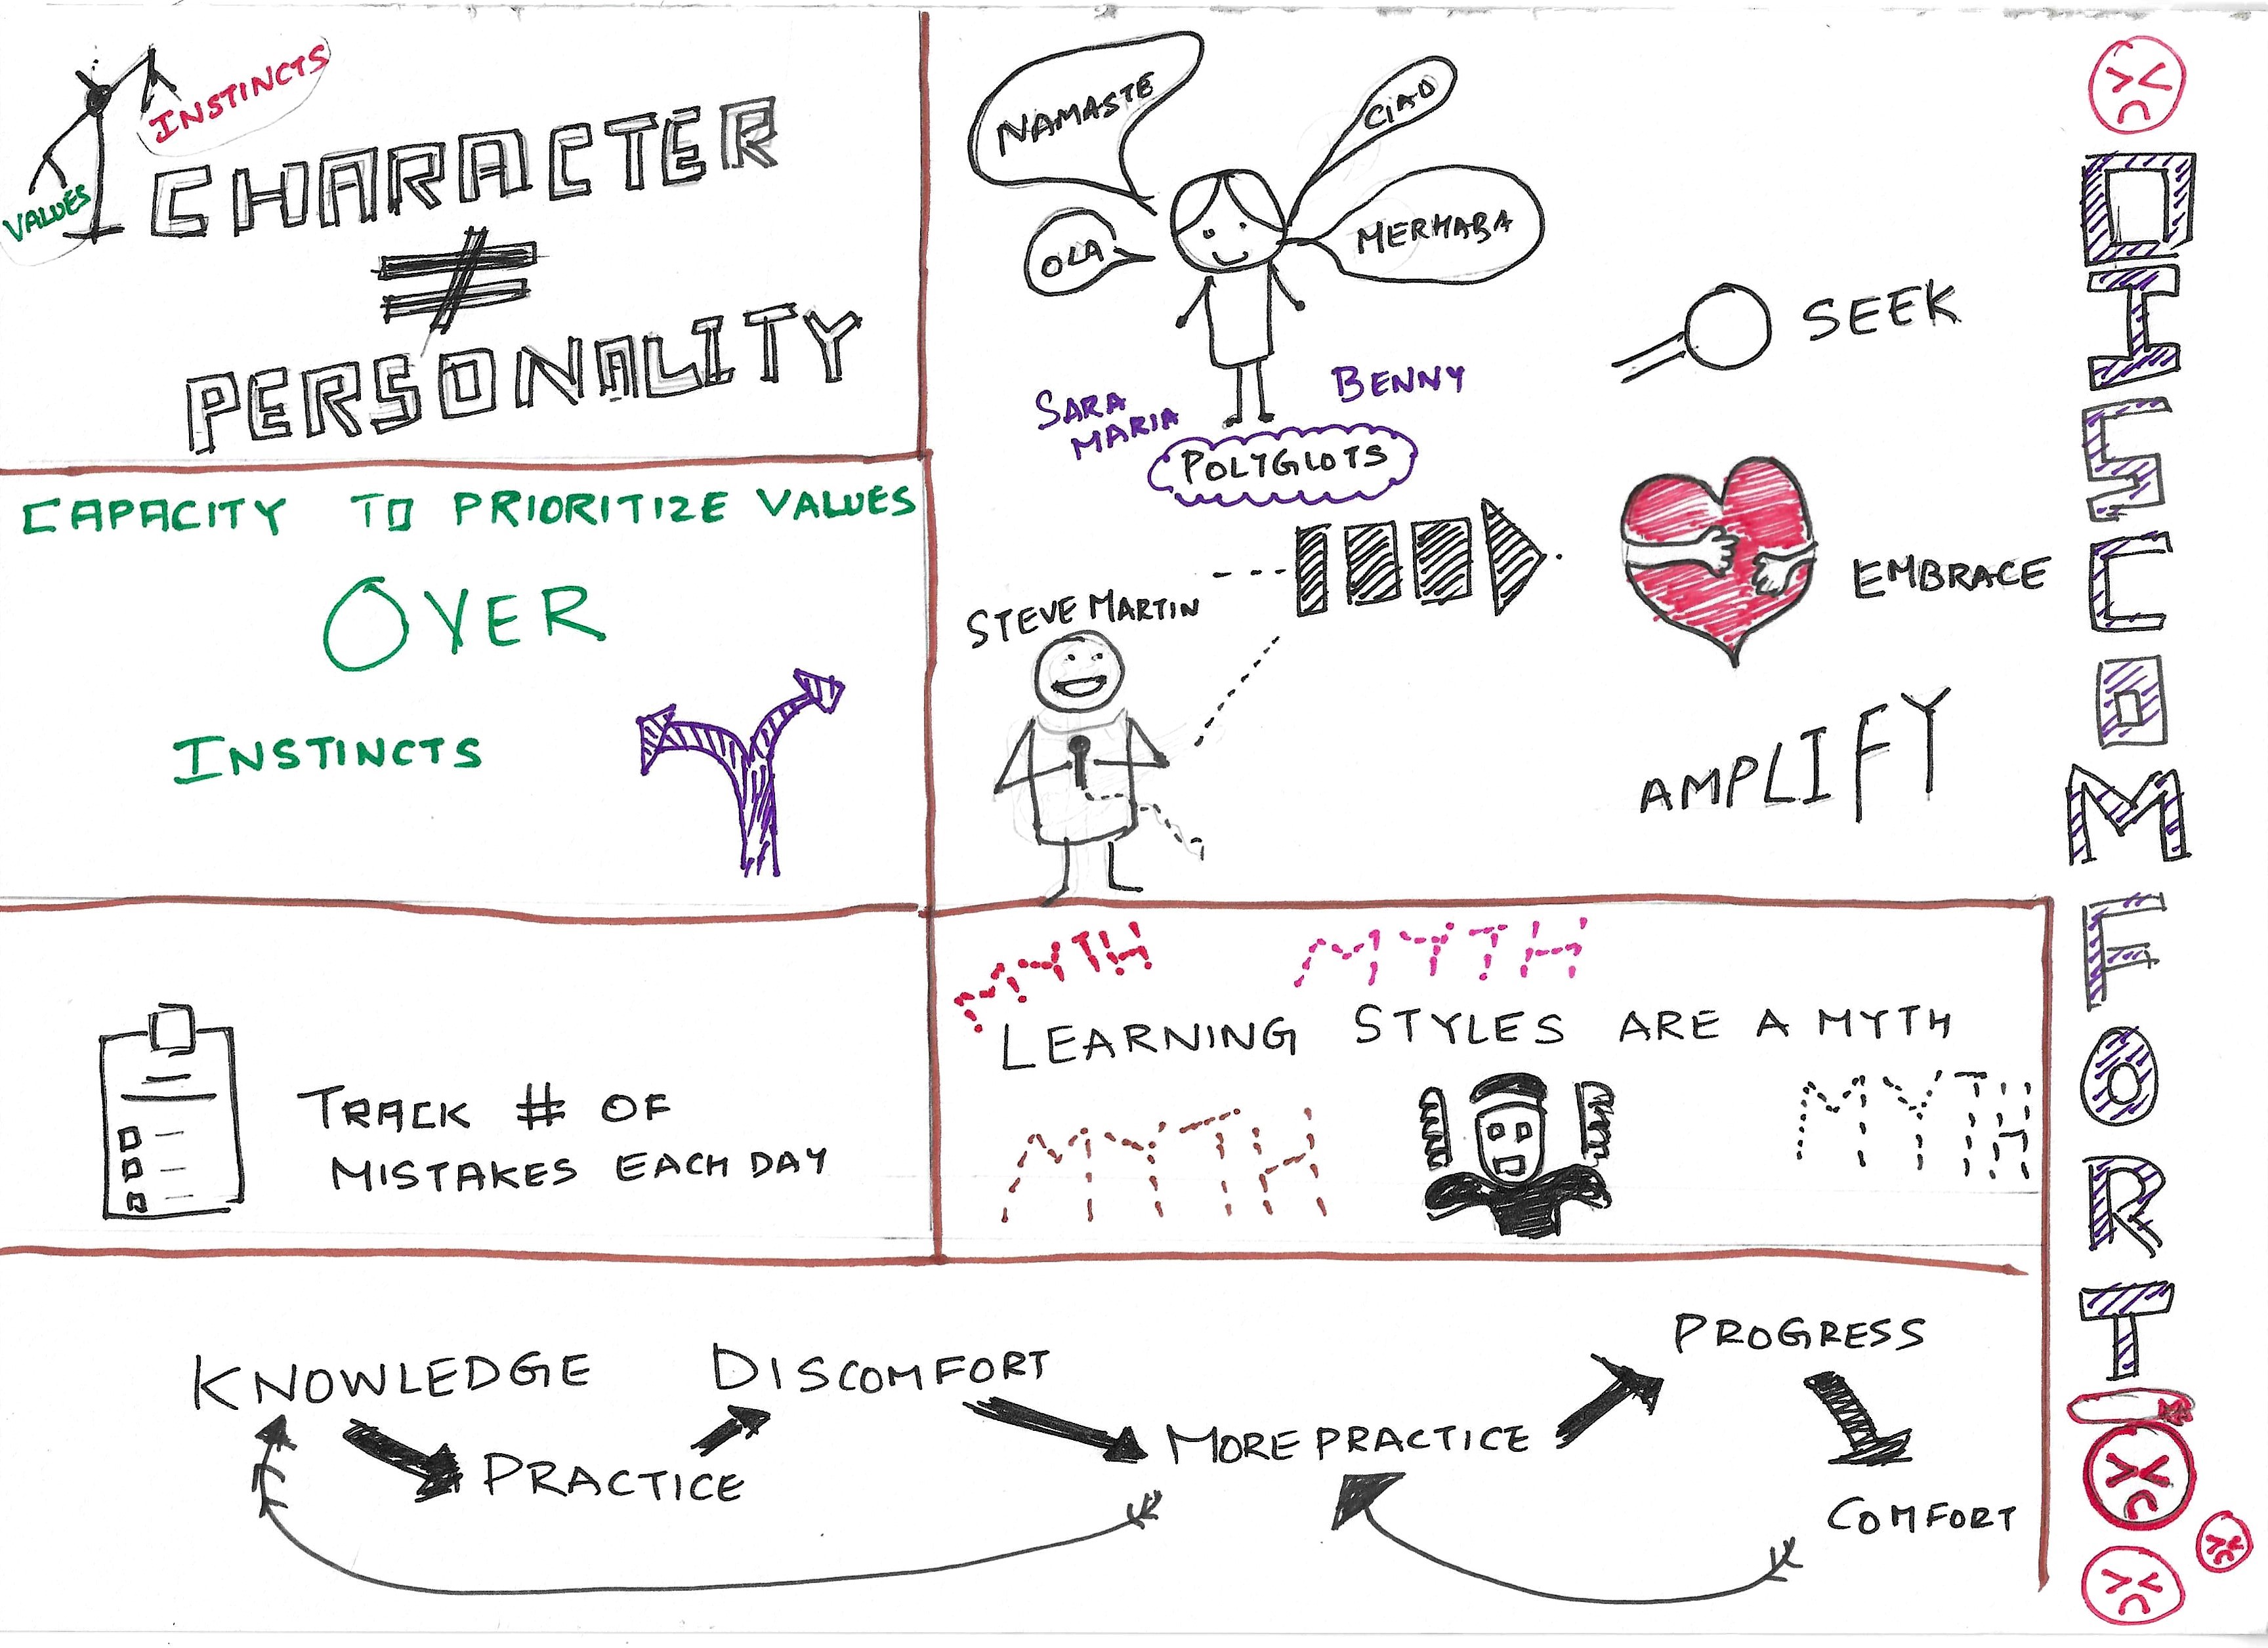 INSTINCTS
VALUES
CHARACTER
≠
PERSONALITY
CAPACITY TO PRIORITIZE VALUES
OVER
INSTINCTS
TRACK # OF
MISTAKES EACH DAY
NAMASTE
CIAO
OLA
MERHABA
SARA
MARIA
BENNY
POLYGLOTS
STEVE MARTIN
SEEK
EMBRACE
AMPLIFY
MYTH
MYTH
LEARNING STYLES ARE A MYTH
MYTH
MYTH
KNOWLEDGE
PRACTICE
DISCOMFORT
MORE PRACTICE
PROGRESS
COMFORT
DISCOMFORT